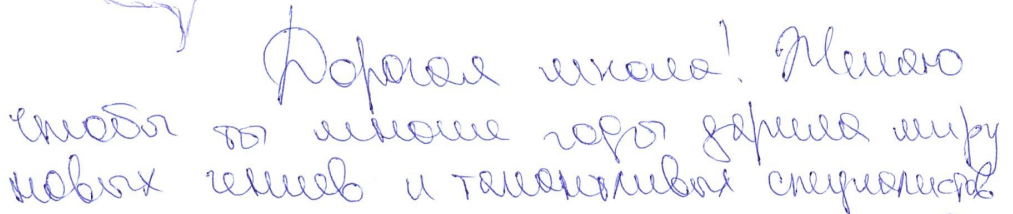 Дорогая школа! Желаю
чтобы ты многие годы дарила миру
новых гениев и талантливых специалистов